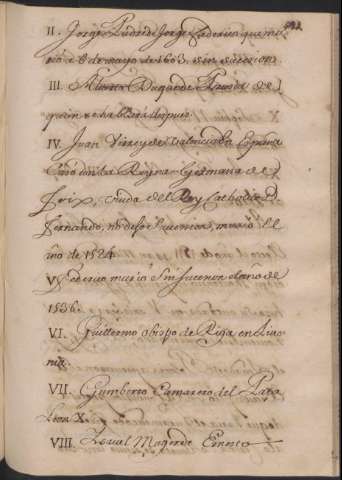 II. Jorge Padre de Jorge Federico que mu
rió a 8 de mayo de 1603 sin sucesion
III. Alberto Duq. de Prusia de
quien se hablará despues.
IV. Juan Virrey de Valencia
Caso con la Reyna Germana de
Foix, viuda del Rey Catholico
Fernando, no dejó sucesion, murio el
año de 1524
V. Federico murio sin sucesion el año de
1536.
VI. Guillermo obispo de Riga en Livo
nia.
VII. Gumberto Camarero del Papa
Leon X.
VIII.